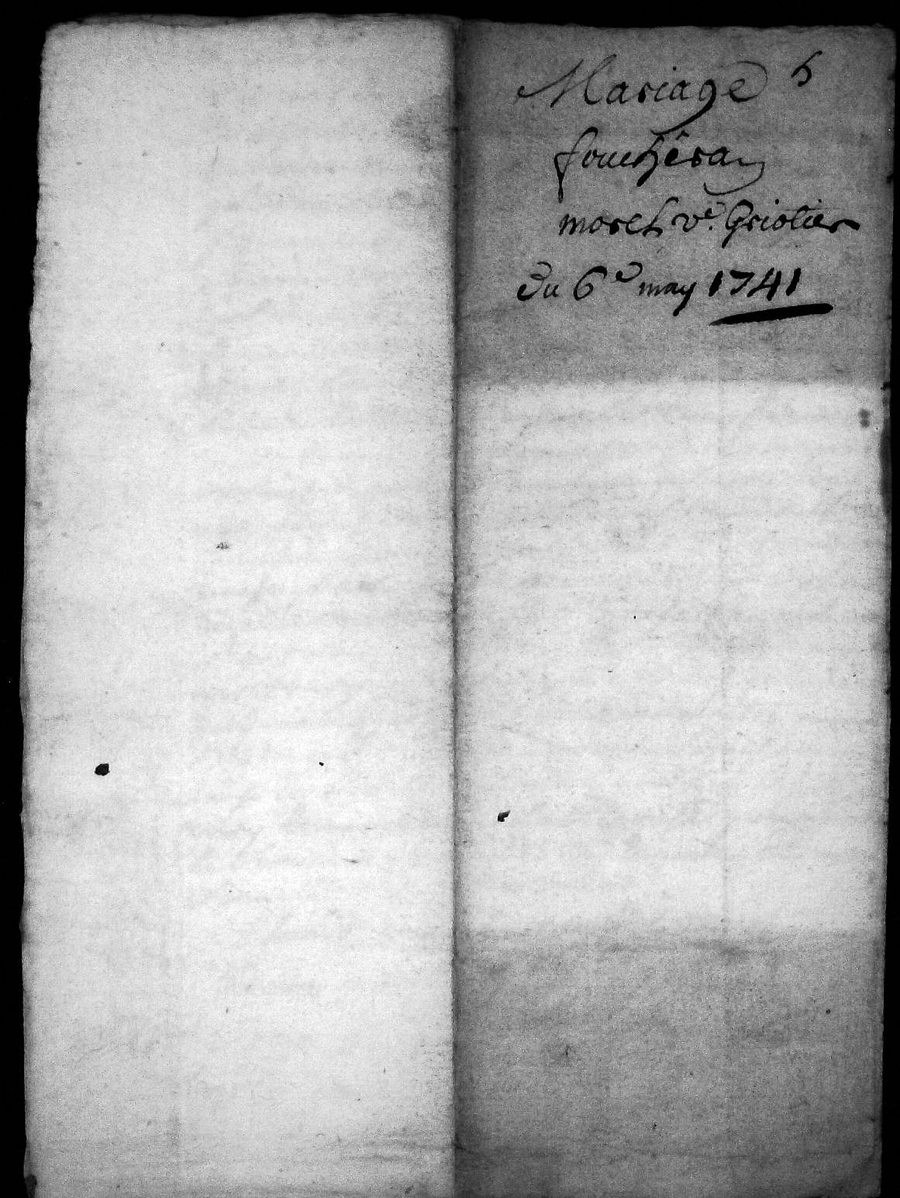 Mariage
fouchéra
morel ve. Griotier
Du 6e may 1741